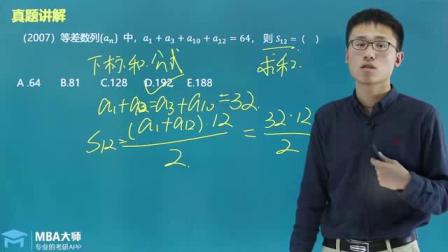 真题讲解
(2007) 等差数列{aₙ} 中，a₁ + a₃ + a₁₀ + a₁₂ = 64，则 S₁₂ = ( )
下标和公式
求和
A .64 B.81 C.128 D.192 E.188
a₁+a₁₂=a₃+a₁₀=32.
S₁₂= (a₁+a₁₂)·12 / 2. = 32·12 / 2
MBA大师
专业的考研APP